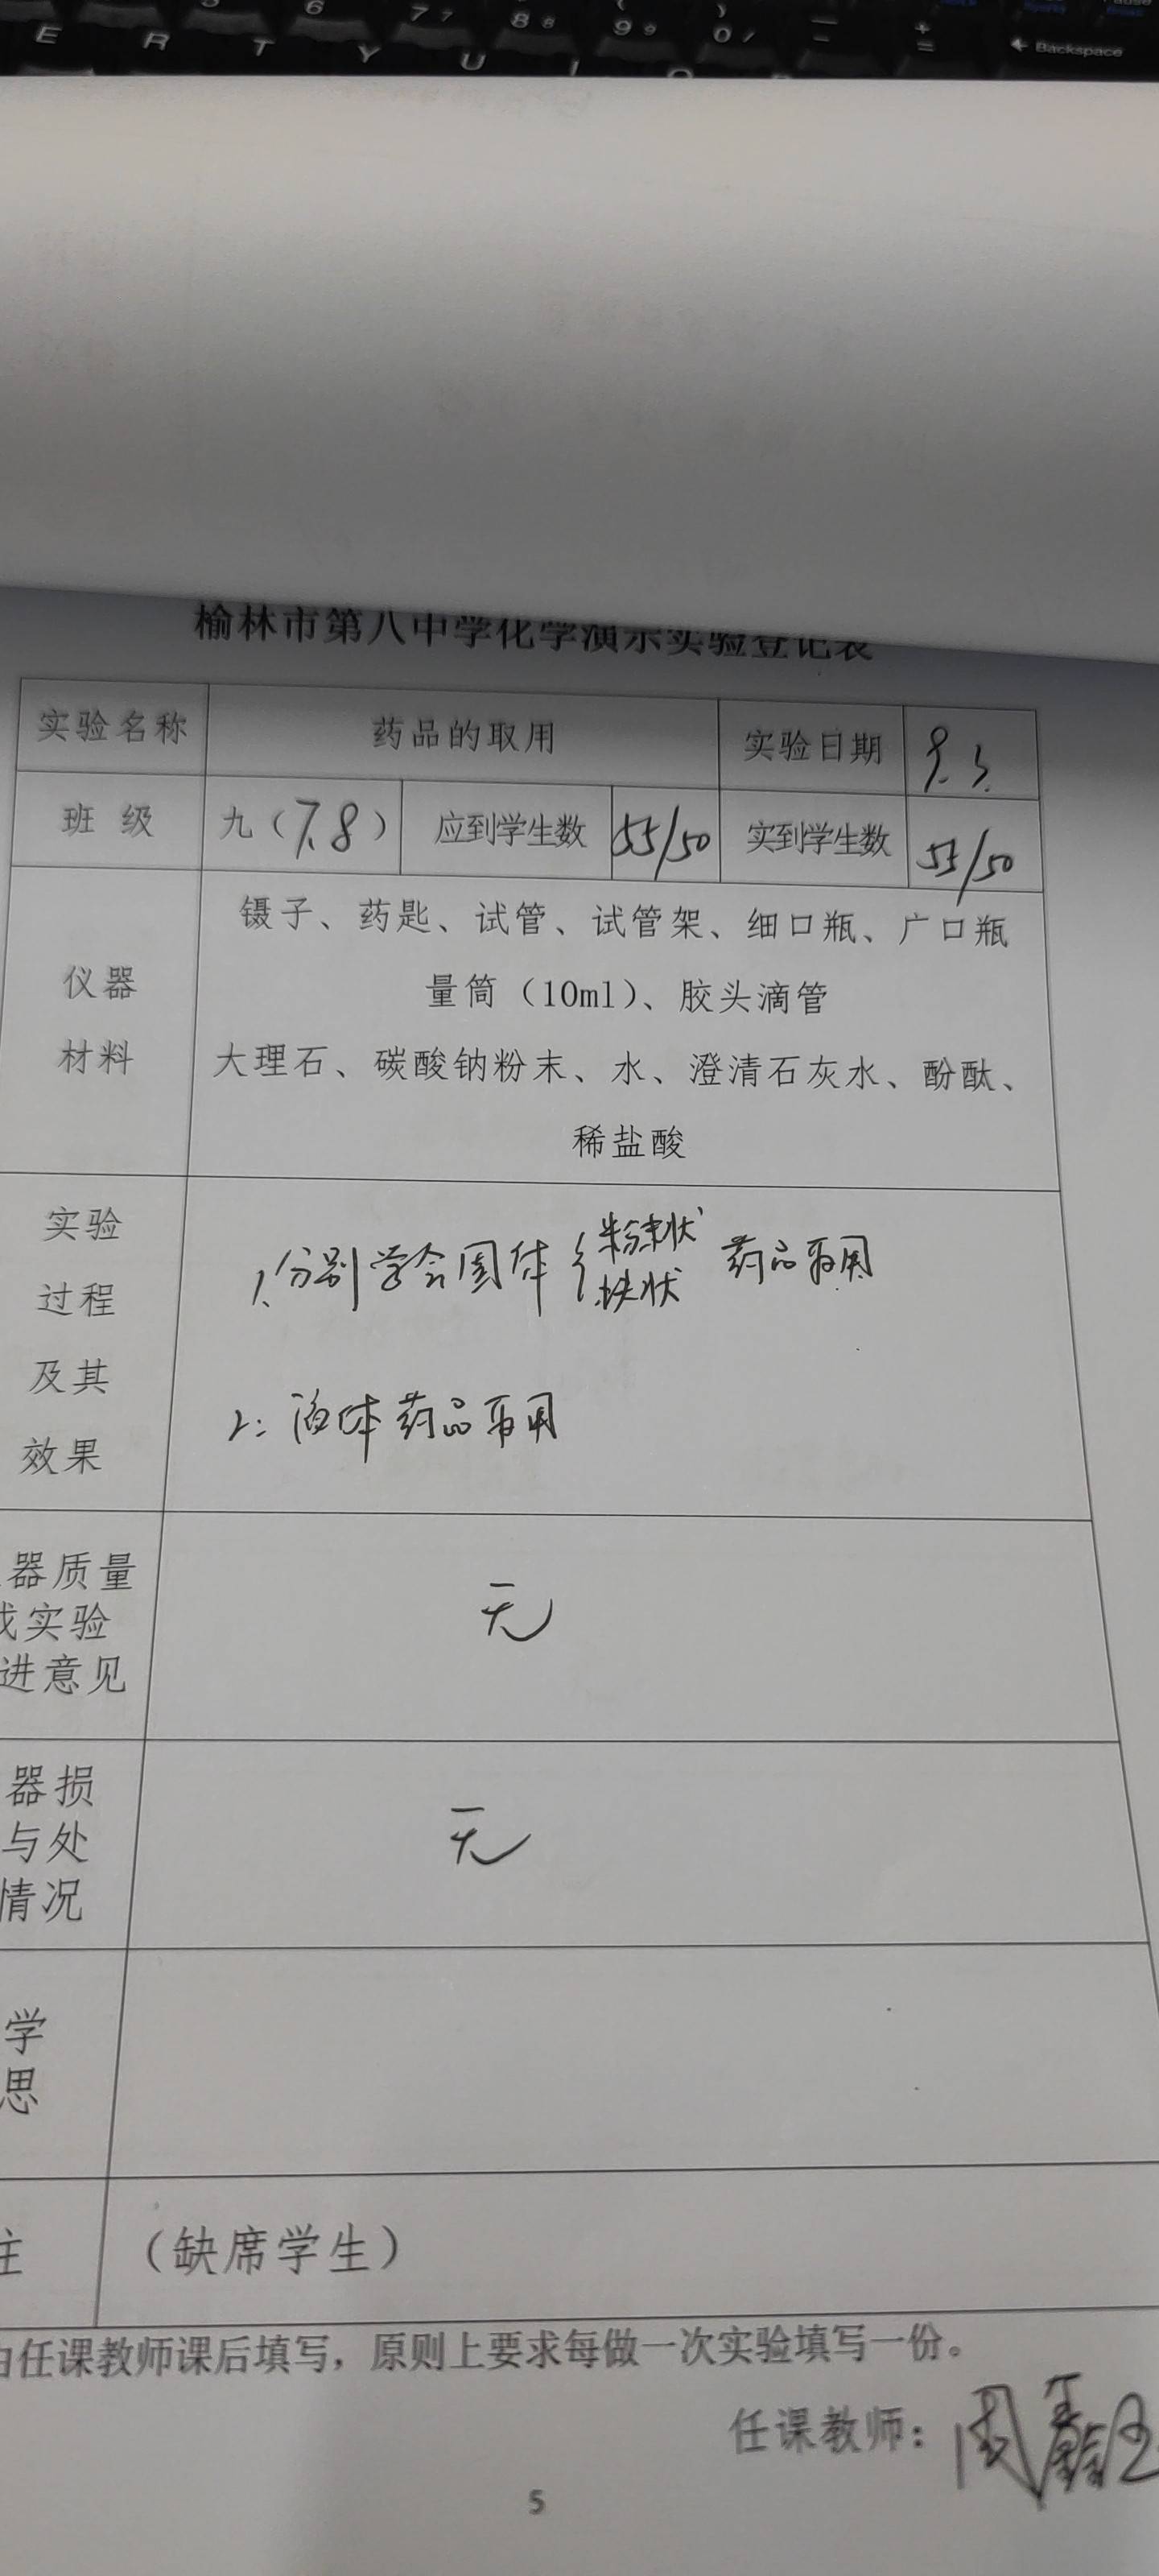 E R T Y U I O
6 7 8 9 0 - + =
Backspace
榆林市第八中学化学演示实验登记表
实验名称 药品的取用 实验日期 9.3.
班 级 九（7.8） 应到学生数 55/50 实到学生数 55/50
镊子、药匙、试管、试管架、细口瓶、广口瓶
仪器
量筒（10ml）、胶头滴管
材料
大理石、碳酸钠粉末、水、澄清石灰水、酚酞、
稀盐酸
实验
过程
及其
效果
1.分别学会固体{粉末状 块状 药品取用
2: 液体药品取用
器质量
或实验
进意见
无
器损
与处
情况
无
学
思
注 （缺席学生）
由任课教师课后填写，原则上要求每做一次实验填写一份。
任课教师：周
5